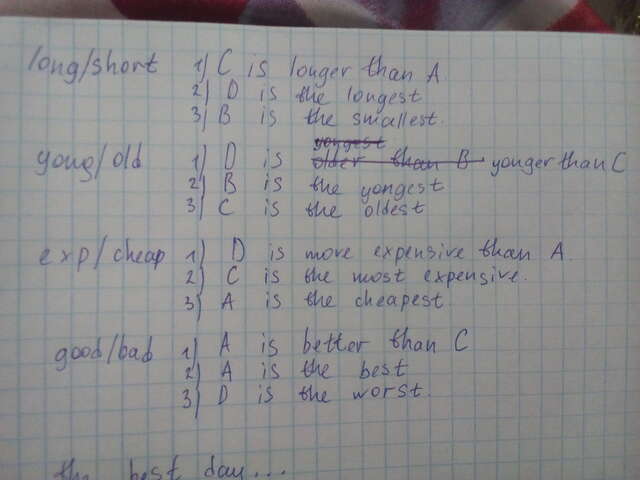 long/short 1) C is longer than A
2) D is the longest
3) B is the smallest.
yongest
yong/old 1) D is older than B yonger than C
2) B is the yongest
3) C is the oldest
exp/cheap 1) D is more expensive than A.
2) C is the most expensive.
3) A is the cheapest
good/bad 1) A is better than C
2) A is the best
3) D is the worst.
the best day...